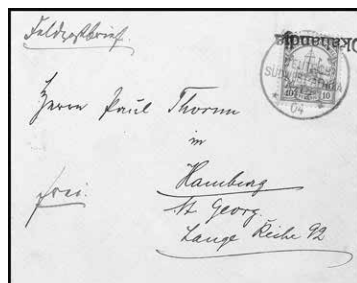 Feldpostbrief.
Okahandja
04
10 10
Herrn Paul Thorun
in
Hamburg
frei.
St Georg.
Lange Reihe 92